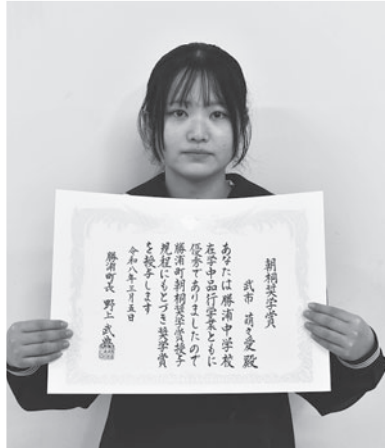 朝桐奨学賞
武市 萌々愛 殿
あなたは勝浦中学校
在学中品行学業ともに
優秀でありましたので
勝浦町朝桐奨学賞授与
規程にもとづき奨学賞
を授与します
令和八年三月五日
勝浦町長 野上 武典